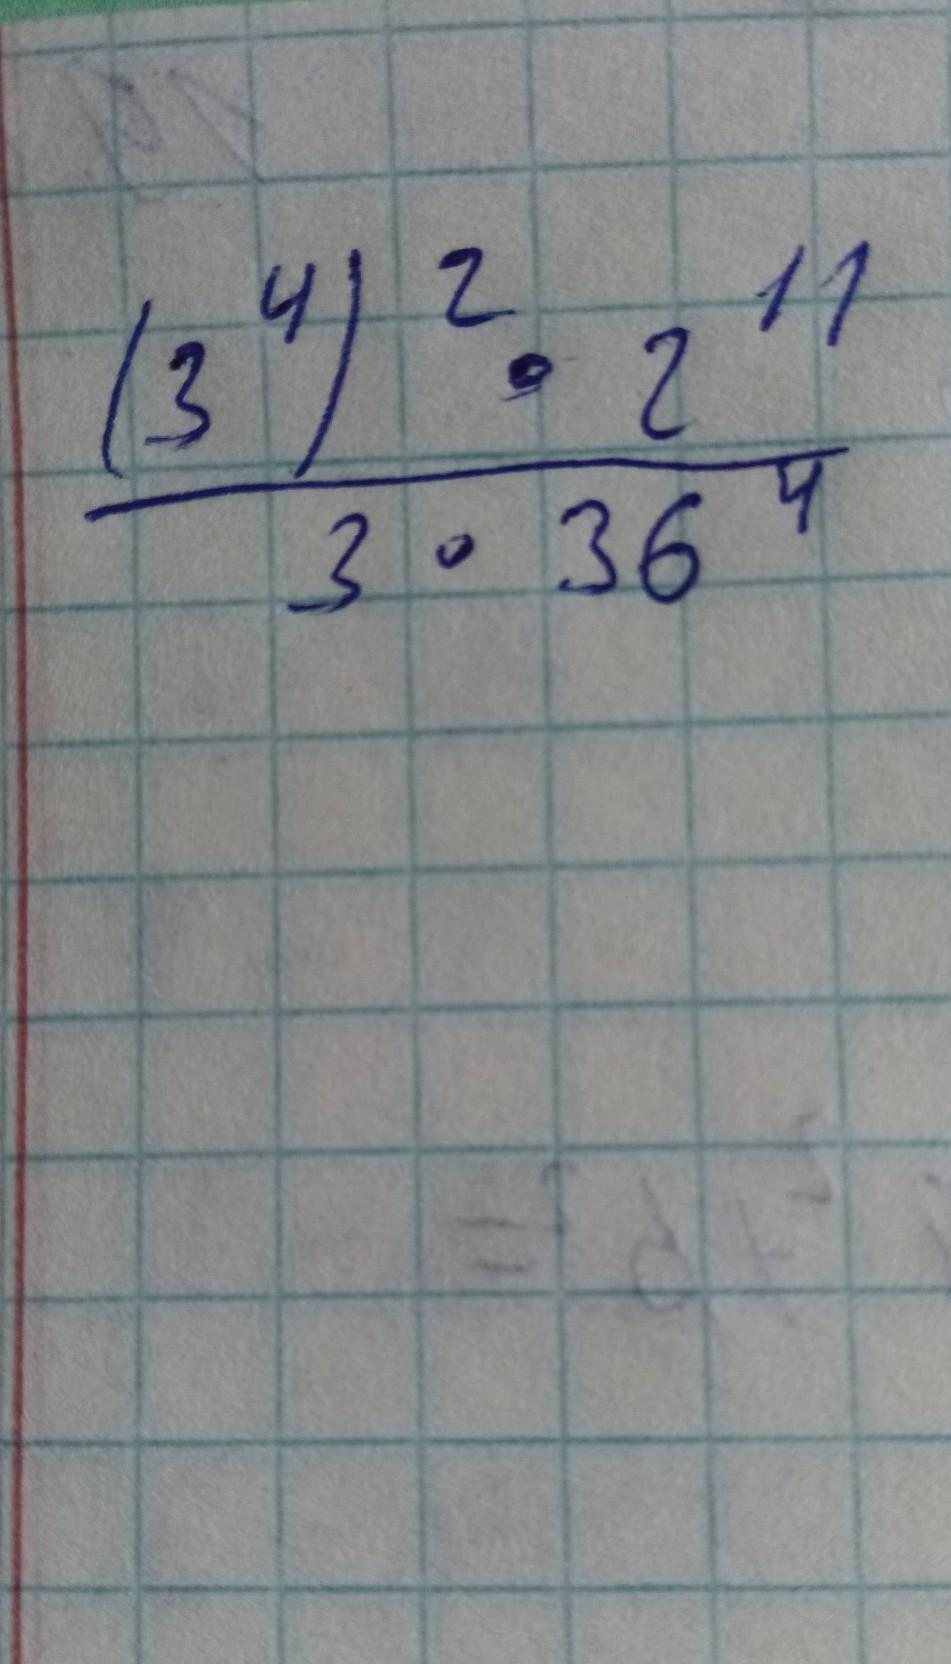 (3⁴)² • 2¹¹
3 • 36⁴